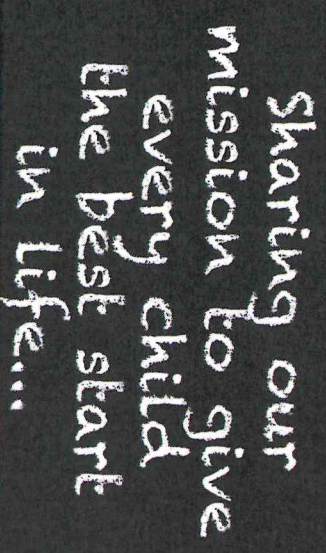 Sharing our
mission to give
every child
the best start
in life...